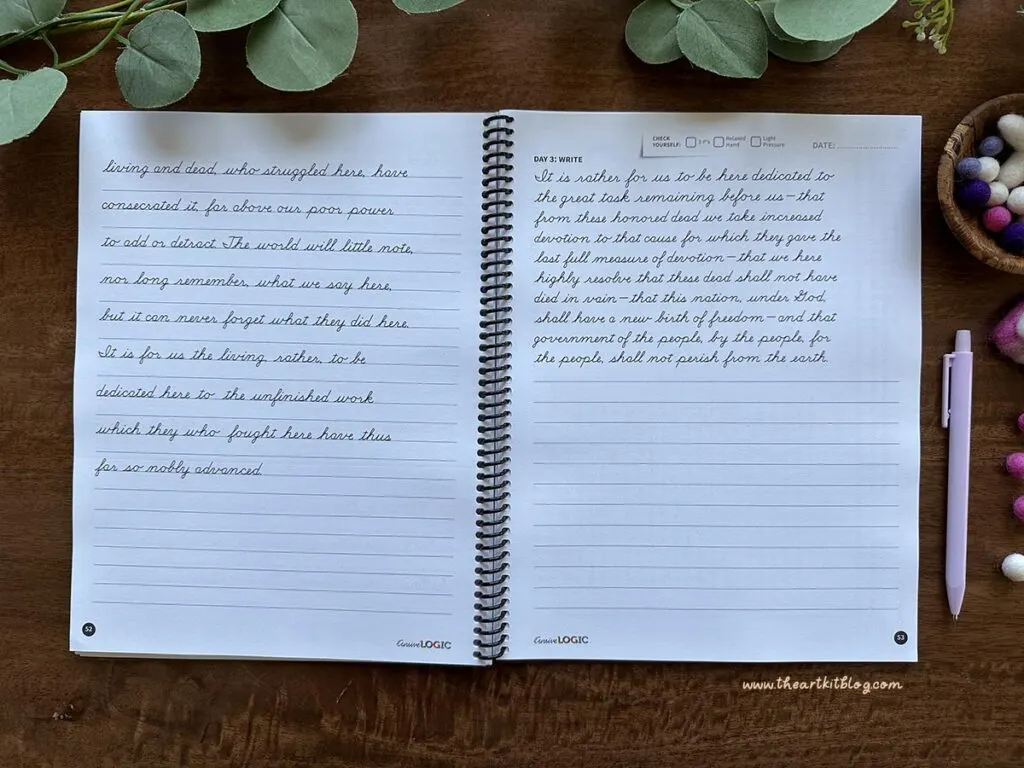 living and dead, who struggled here, have
consecrated it, far above our poor power
to add or detract. The world will little note,
nor long remember, what we say here,
but it can never forget what they did here.
It is for us the living rather, to be
dedicated here to the unfinished work
which they who fought here have thus
far so nobly advanced.
52
CursiveLOGIC
CHECK YOURSELF: 3 P's Relaxed Hand Light Pressure DATE:
DAY 3: WRITE
It is rather for us to be here dedicated to
the great task remaining before us—that
from these honored dead we take increased
devotion to that cause for which they gave the
last full measure of devotion—that we here
highly resolve that these dead shall not have
died in vain—that this nation, under God,
shall have a new birth of freedom—and that
government of the people, by the people, for
the people, shall not perish from the earth.
CursiveLOGIC
53
www.theartkitblog.com